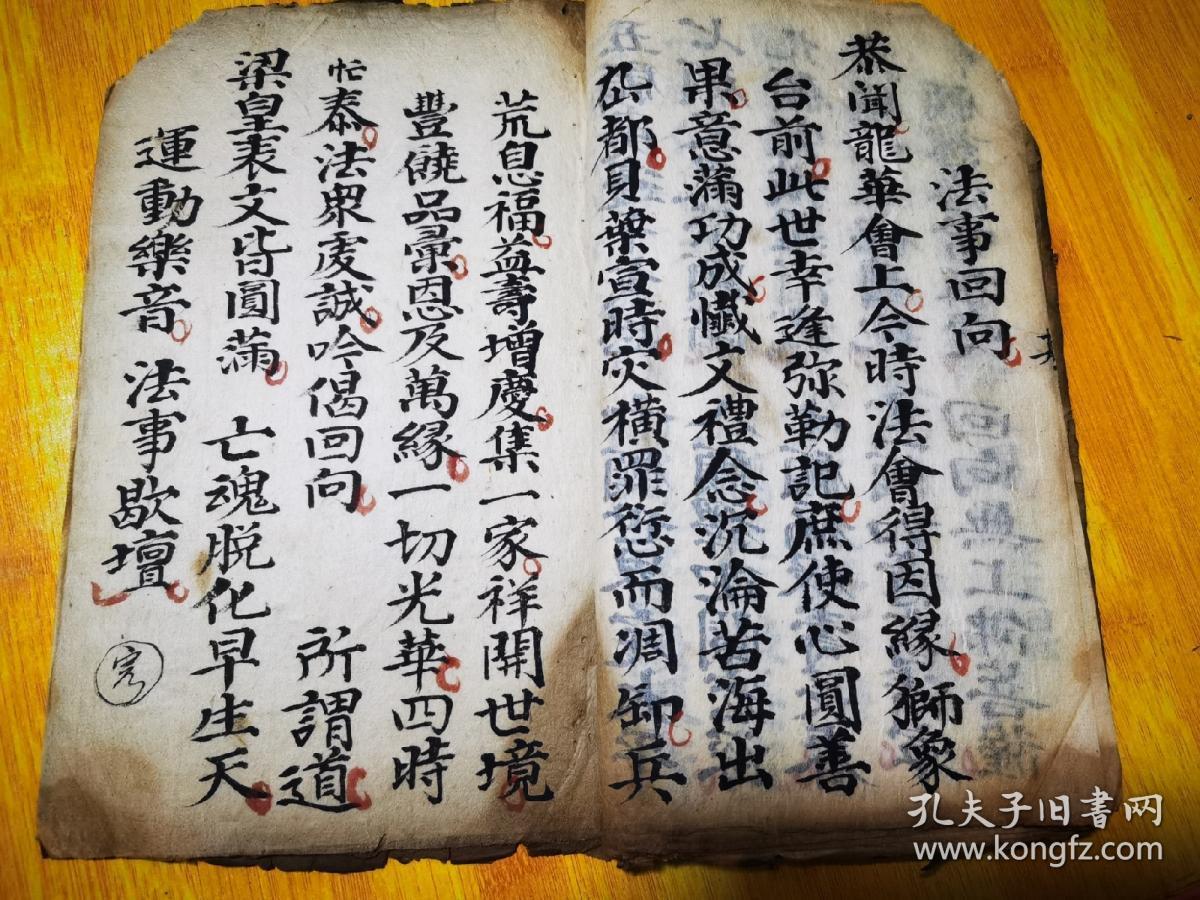 法事回向
恭聞龍華會上今時法會得因緣獅象
台前此世幸逢弥勒記庶使心圓善
果意滿功成懺文禮念沉淪苦海出
都貝葉宣時灾橫罪愆而凋卸兵
荒息福益壽增慶集一家祥開世境
豐饒品彙恩及萬緣一切光華四時
忙泰法衆虔誠吟偈回向 所謂道
梁皇表文皆圓滿 亡魂脱化早生天
運動樂音 法事歇壇
孔夫子旧书网
www.kongfz.com